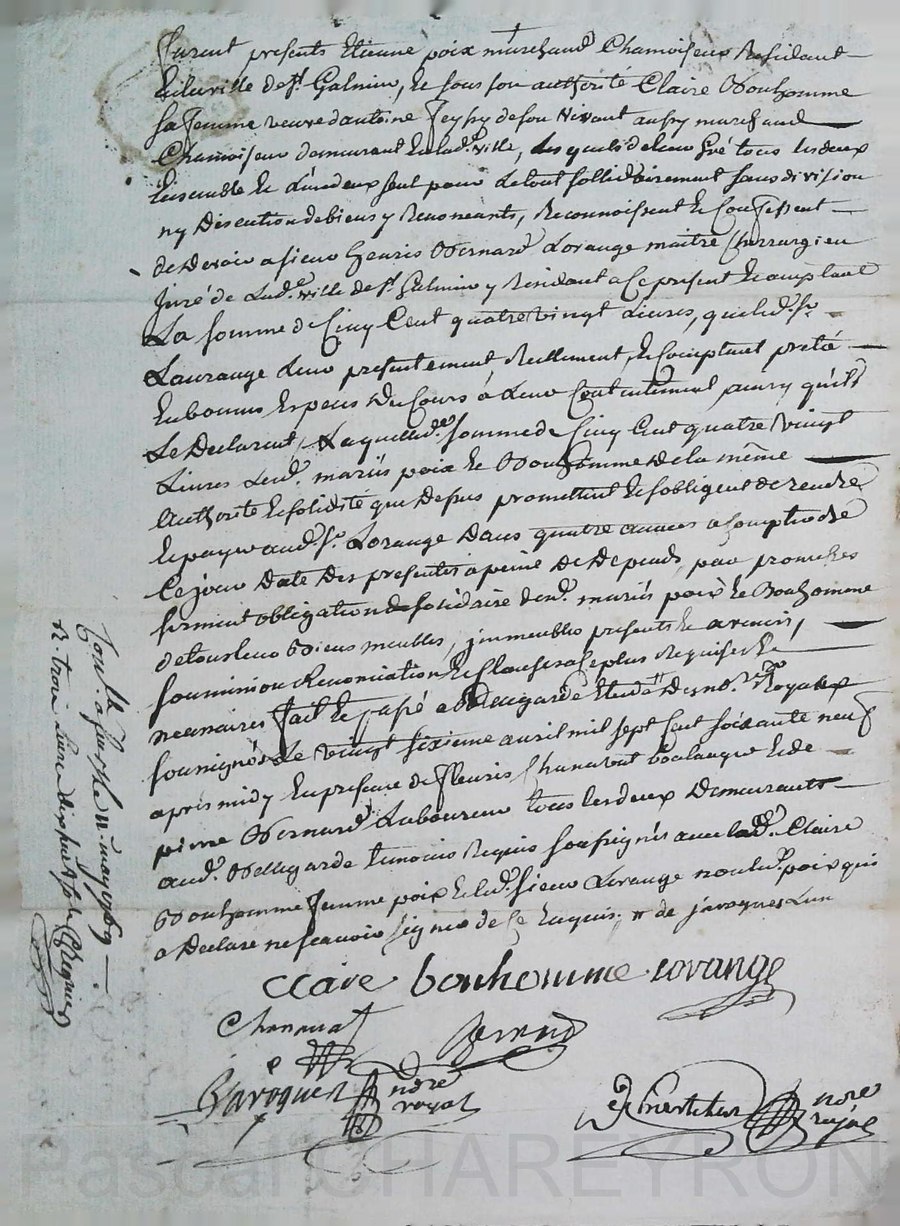 furent presents Etienne poix marchand Chamoiseur Residant
En la ville de St. Galmier, Et sous son authorité Claire Bonhomme
sa femme veuve d'antoine feyssy de son vivant aussy marchand
Chamoiseur demeurant En lad. ville, lesquels de leur gré tous les deux
Ensemble Et L'un deux seul pour Le tout sollidairement sans division
ny Discution de biens y Renonceants, Reconnoissent Et Confessent
de devoir a sieur henris Bernard Lorange maitre Chirurgien
juré de Lade. ville de St. Galmier y Residant a Ce present Et acceptant
La somme de Cinq Cent quatre vingt Livres, que led. Sr.
Laurange Leur presentement, Reellement, Et Comptant preté
En bonnes Especes Du Cours à Leur Contentement, ainsy qu'ils
Le Declarent, Laquelle de. somme de Cinq Cent quatre vingt
Livres Lesd. mariés poix Et Bonhomme de la même
Authorité Et solidité que Dessus promettent Et sobligent de rendre
Et payer aud. Sr. Lorange Dans quatre années a Compter de
Ce jour Date Des presentes a peine de Depends, par promesses
serment obligation solidaire desd. mariés poix Et Bonhomme
de tous leurs Biens meubles, jmmeubles presents Et avenir,
soumission Renonciation Et Clauses a Ce plus Requises Et
necessaires fait Et passé a Bellegarde Etude Des nores. Royaux
soussignés Le vingt sixieme avril mil sept Cent soixante neuf
apres midy En presence de fleuris Chanavat boulanger Et de
pierre Bernard Laboureur tous les deux Demeurants
aud. Bellegarde temoins Requis soussignés avec lade. Claire
Bonhomme femme poix Et led. sieur Lorange non led. poix qui
a Declaré ne scavoir signer de Ce Enquis.
cLaire bonhomme Lorange
Chanavat
Bernard
nore royal
nore royal
Conllé. a
may 1769
Rs. trois Livres dix huit sols
Pascal CHAREYRON